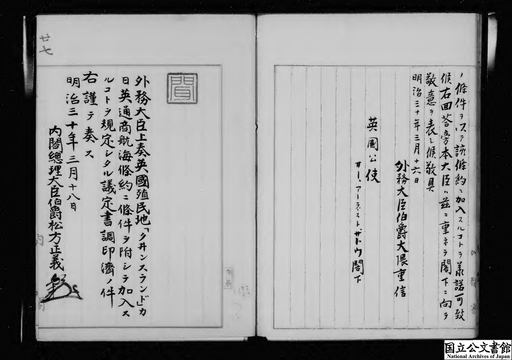 ノ條件ヲ以テ該條約ニ加入スルコトヲ承諾可致
候右回答旁本大臣ハ茲ニ重テ閣下ニ向テ
敬意ヲ表シ候敬具
明治三十年三月十六日
外務大臣伯爵大隈重信
英國公使
サー、アーネスト、サトウ閣下
廿七
外務大臣上奏英國殖民地「クヰンスランド」カ
日英通商航海條約ニ條件ヲ附シテ加入ス
ルコトヲ規定シタル議定書調印濟ノ件
右謹テ奏ス
明治三十年三月十八日
内閣總理大臣伯爵松方正義
国立公文書館
National Archives of Japan